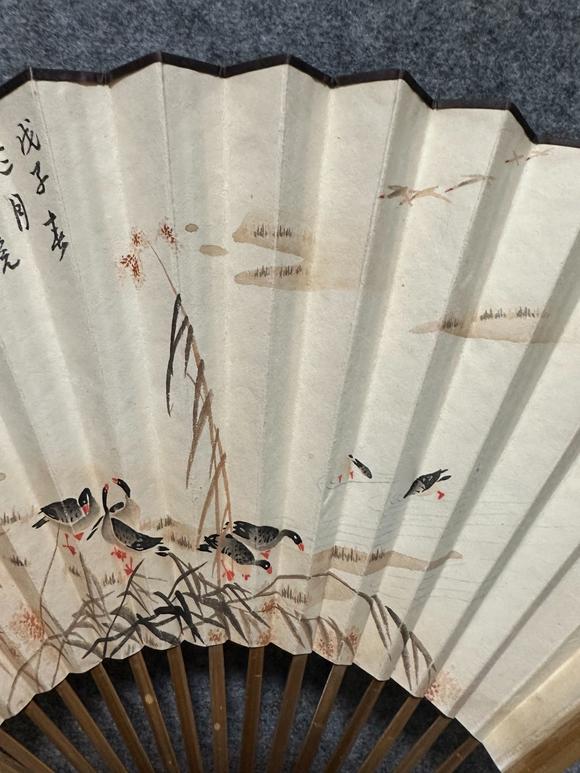 戊子春
三月